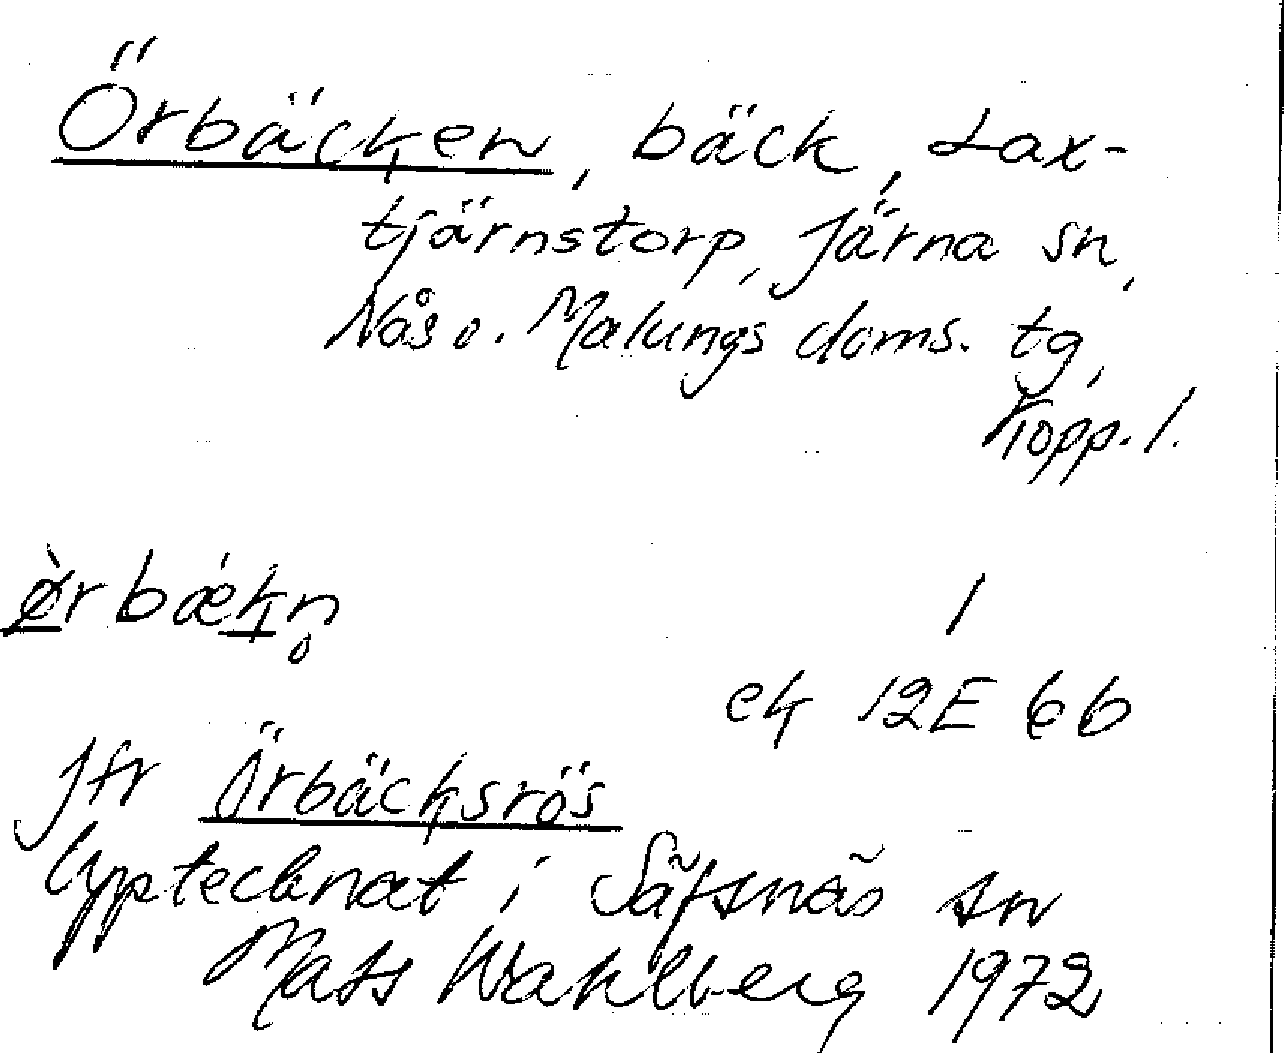 Örbäcken, bäck, Lax-
tjärnstorp, Järna sn,
Nås o. Malungs doms. tg,
Kopp. l.
ø̀rbǽkn̥
1
ek 12E 6b
Jfr Örbäcksrös
Upptecknat i Säfsnäs sn
Mats Wahlberg 1972